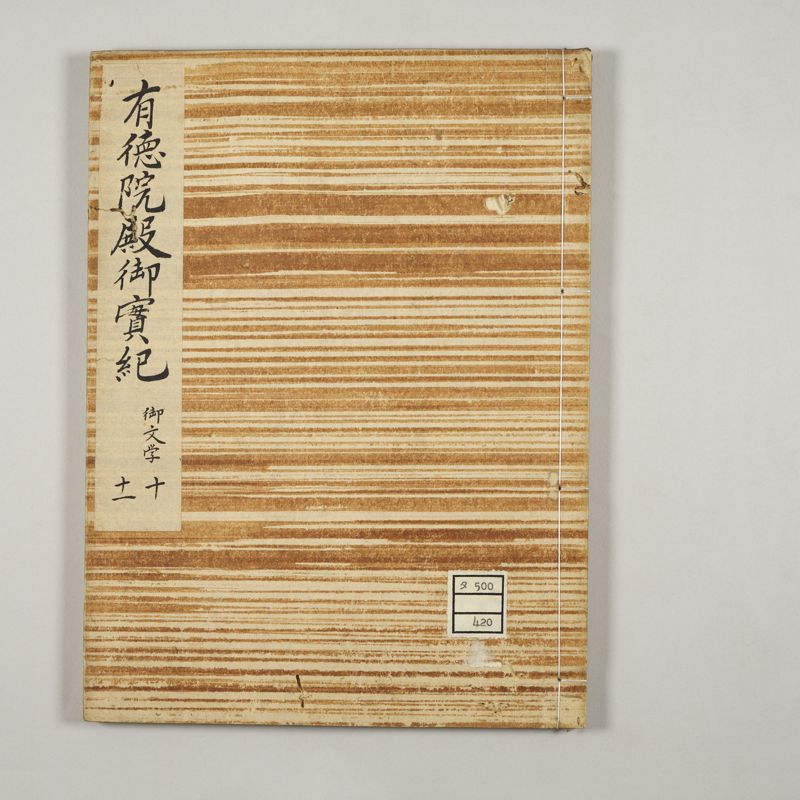 有徳院殿御實紀
御文学
十
十一
タ 500
420